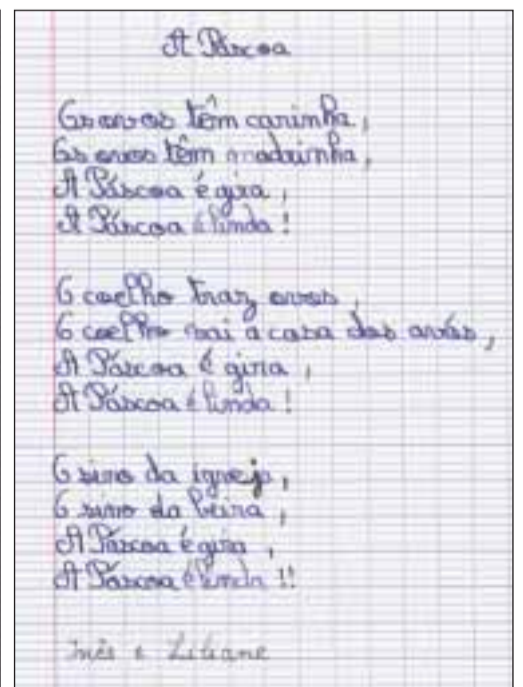 A Páscoa
Os ovos têm carinha,
Os ovos têm madrinha,
A Páscoa é gira,
A Páscoa é linda!
O coelho traz ovos,
O coelho vai a casa dos avós,
A Páscoa é gira,
A Páscoa é linda!
O sino da igreja,
O sino da
A Páscoa é gira,
A Páscoa é linda!!
Inês e Liliane